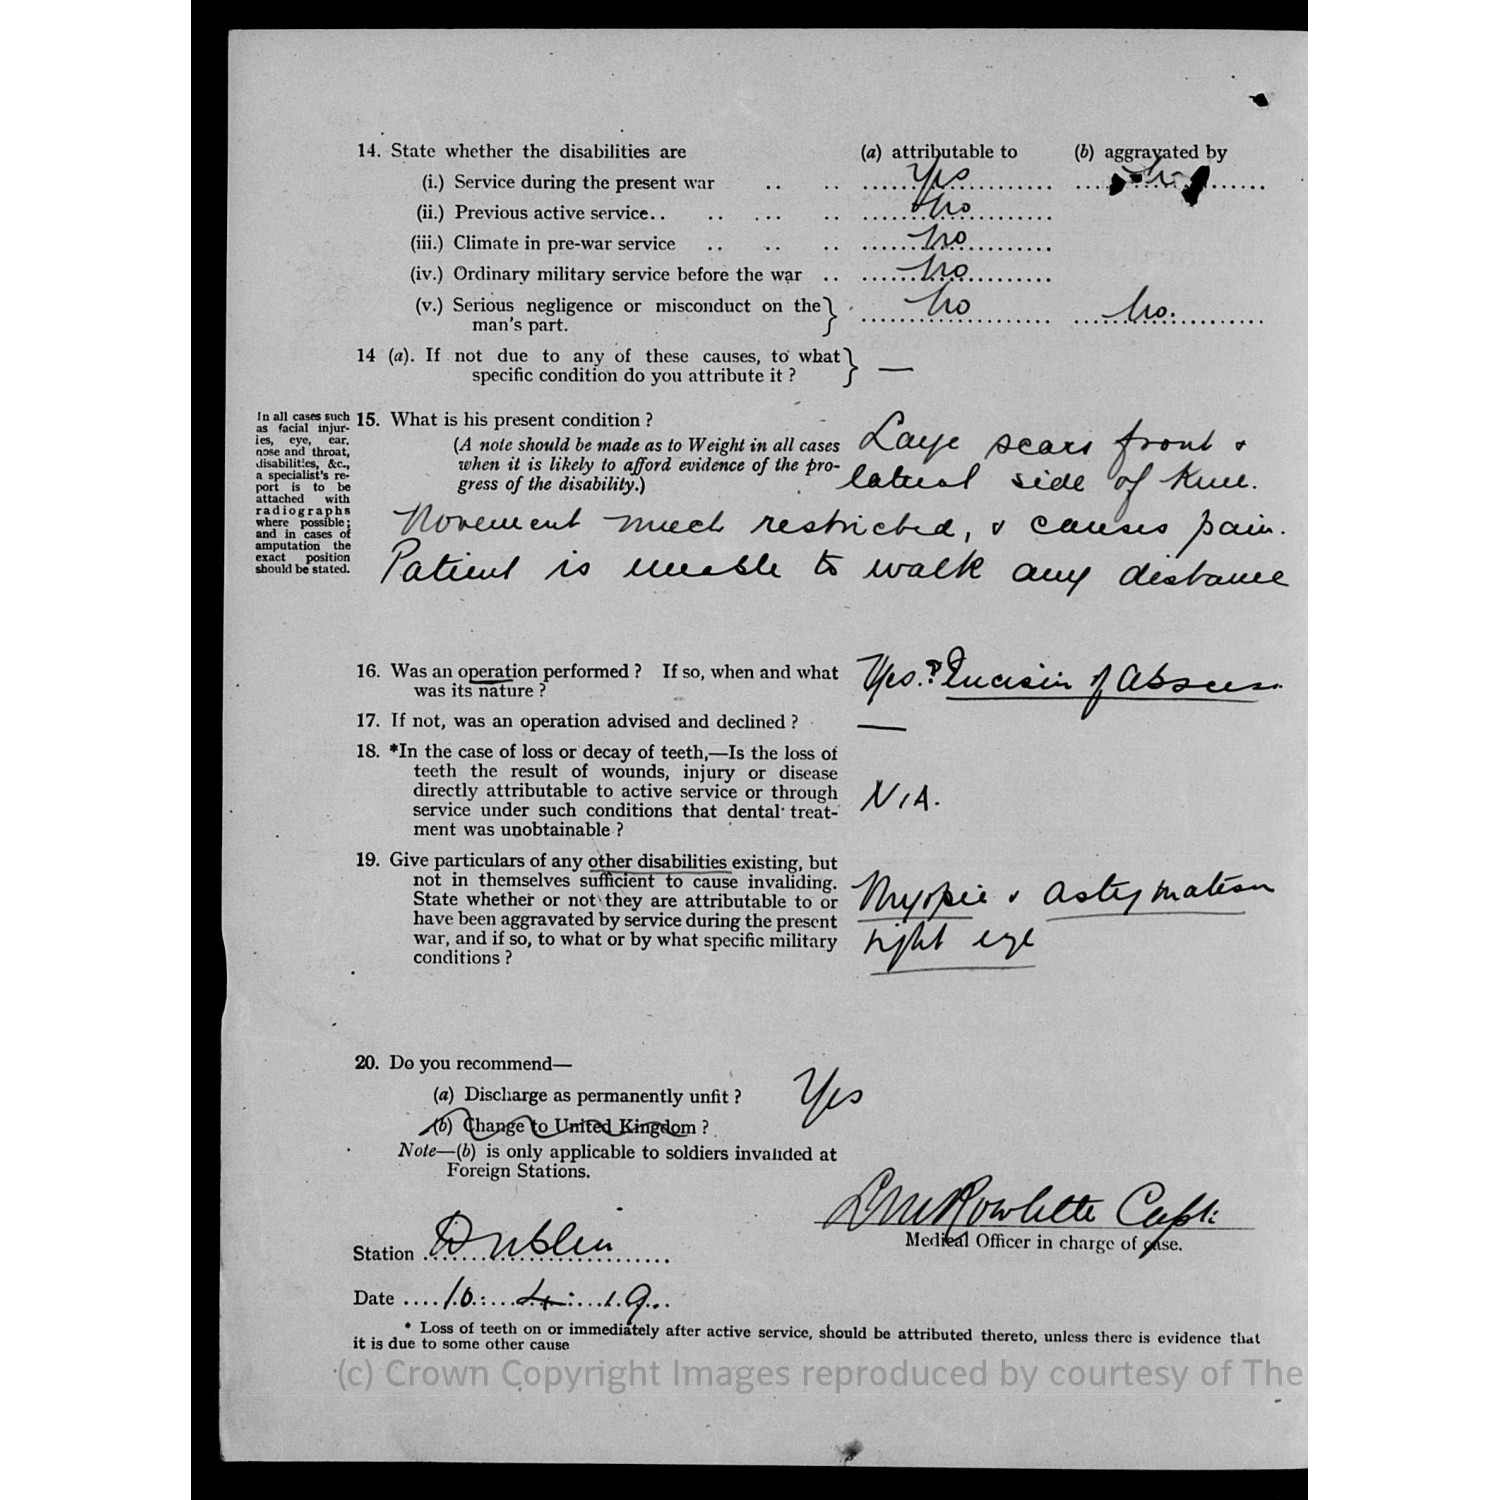 14. State whether the disabilities are (a) attributable to (b) aggravated by
(i.) Service during the present war .. .. Yes
(ii.) Previous active service.. .. ... .. No
(iii.) Climate in pre-war service .. .. .. No
(iv.) Ordinary military service before the war .. No
(v.) Serious negligence or misconduct on the No No.
man's part.
14 (a). If not due to any of these causes, to what —
specific condition do you attribute it ?
In all cases such
as facial injur-
ies, eye, ear,
nose and throat,
disabilities, &c.,
a specialist's re-
port is to be
attached with
radiographs
where possible;
and in cases of
amputation the
exact position
should be stated.
15. What is his present condition ?
(A note should be made as to Weight in all cases
when it is likely to afford evidence of the pro-
gress of the disability.)
Large scars front &
lateral side of knee.
Movement much restricted, & causes pain.
Patient is unable to walk any distance
16. Was an operation performed ? If so, when and what
was its nature ?
Yes. ? Incision of Abscess.
17. If not, was an operation advised and declined ? —
18. *In the case of loss or decay of teeth,—Is the loss of
teeth the result of wounds, injury or disease
directly attributable to active service or through
service under such conditions that dental treat-
ment was unobtainable ?
N/A.
19. Give particulars of any other disabilities existing, but
not in themselves sufficient to cause invaliding.
State whether or not they are attributable to or
have been aggravated by service during the present
war, and if so, to what or by what specific military
conditions ?
Myopie & astygmatism
right eye
20. Do you recommend—
(a) Discharge as permanently unfit ? Yes
(b) Change to United Kingdom ?
Note—(b) is only applicable to soldiers invalided at
Foreign Stations.
Rowlette Capt:
Medical Officer in charge of case.
Station Dublin
Date 10 : 4 : 19
* Loss of teeth on or immediately after active service, should be attributed thereto, unless there is evidence that
it is due to some other cause
(c) Crown Copyright Images reproduced by courtesy of The